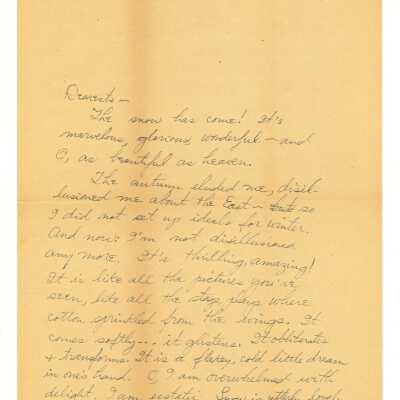 Dearests—
The snow has come! It's
marvelous, glorious, wonderful — and
O, as beautiful as heaven.
The autumn eluded me, disil-
lusioned me about the East — so
I did not set up ideals for winter.
And now: I'm not disillusioned
any more. It's thrilling, amazing!
It is like all the pictures you've
seen, like all the stage plays where
cotton sprinkled from the wings. It
comes softly... it glistens. It obliterates
+ transforms. It is a flakey, cold little dream
in one's hand. O, I am overwhelmed with
delight, I am ecstatic. Snow is utterly